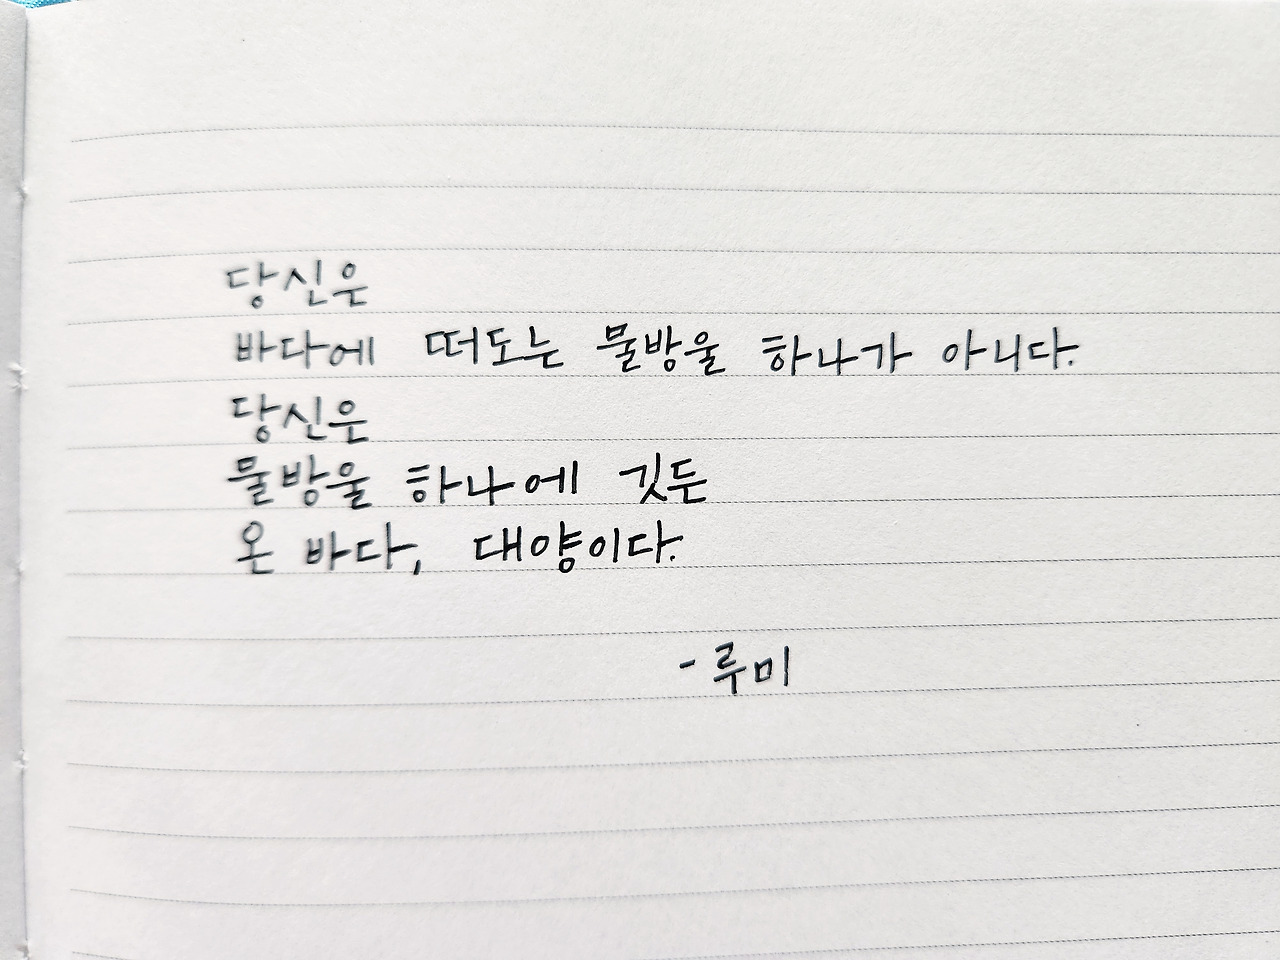 당신은
바다에 떠도는 물방울 하나가 아니다.
당신은
물방울 하나에 깃든
온 바다, 대양이다.
- 루미